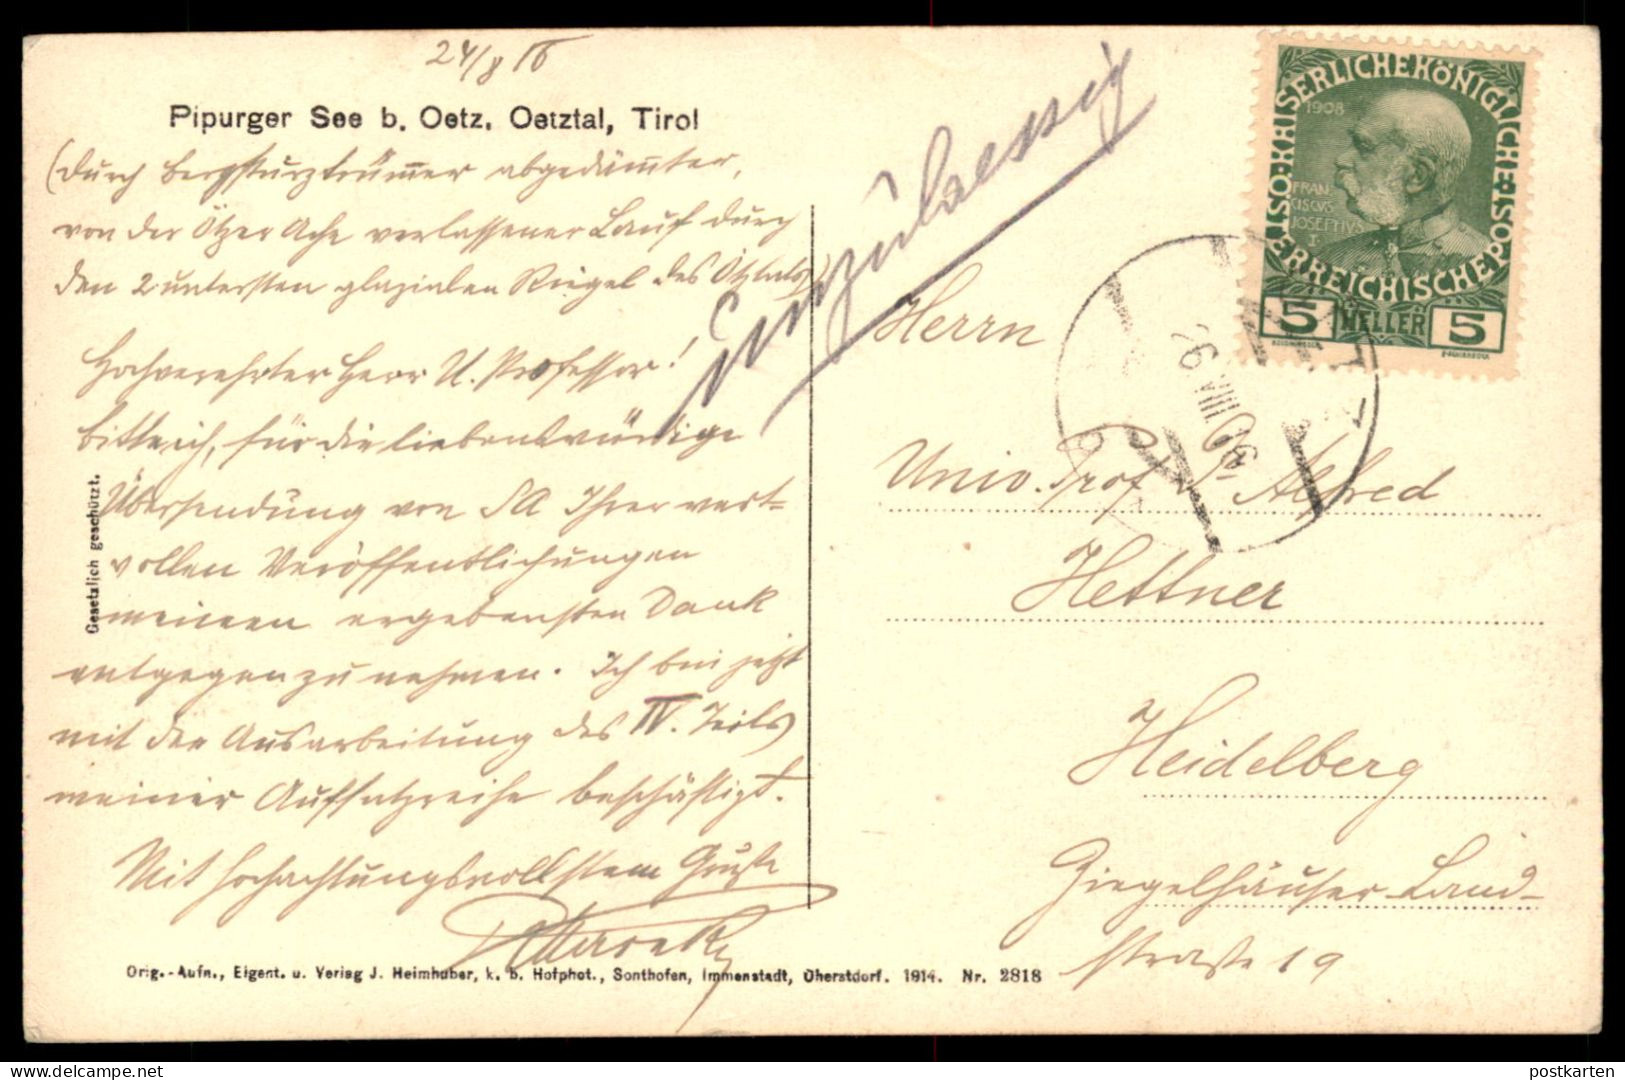 24/8 16
Pipurger See b. Oetz. Oetztal, Tirol
(Durch Bergsturztrüm̅er abgedäm̅ter,
von der Ötzer Ache verlassener Lauf durch
den 2 untersten glazialen Riegel des Ötztals)
Hochverehrter Herr U. Professor!
Bitte ich, für die liebenswürdige
Übersendung von SA Ihrer wert-
vollen Veröffentlichungen
meinen ergebensten Dank
entgegenzunehmen. Ich bin jetzt
mit der Ausarbeitung des IV. Teils
meiner Aufsatzreihe beschäftigt.
Mit hochachtungsvollstem Gruße
Gesetzlich geschützt.
Orig.-Aufn., Eigent. u. Verlag J. Heimhuber, k. b. Hofphot., Sonthofen, Immenstadt, Oberstdorf. 1914. Nr. 2818
Unzulaessig
KAISERLICHEKÖNIGLICHE
ÖSTERREICHISCHE POST
1908
FRAN-
CISCVS
JOSEPHVS
I.
5 HELLER 5
Herrn
Univ. Prof. Dr Alfred
Hettner
Heidelberg
Ziegelhäuser Land-
straße 19
postkarten